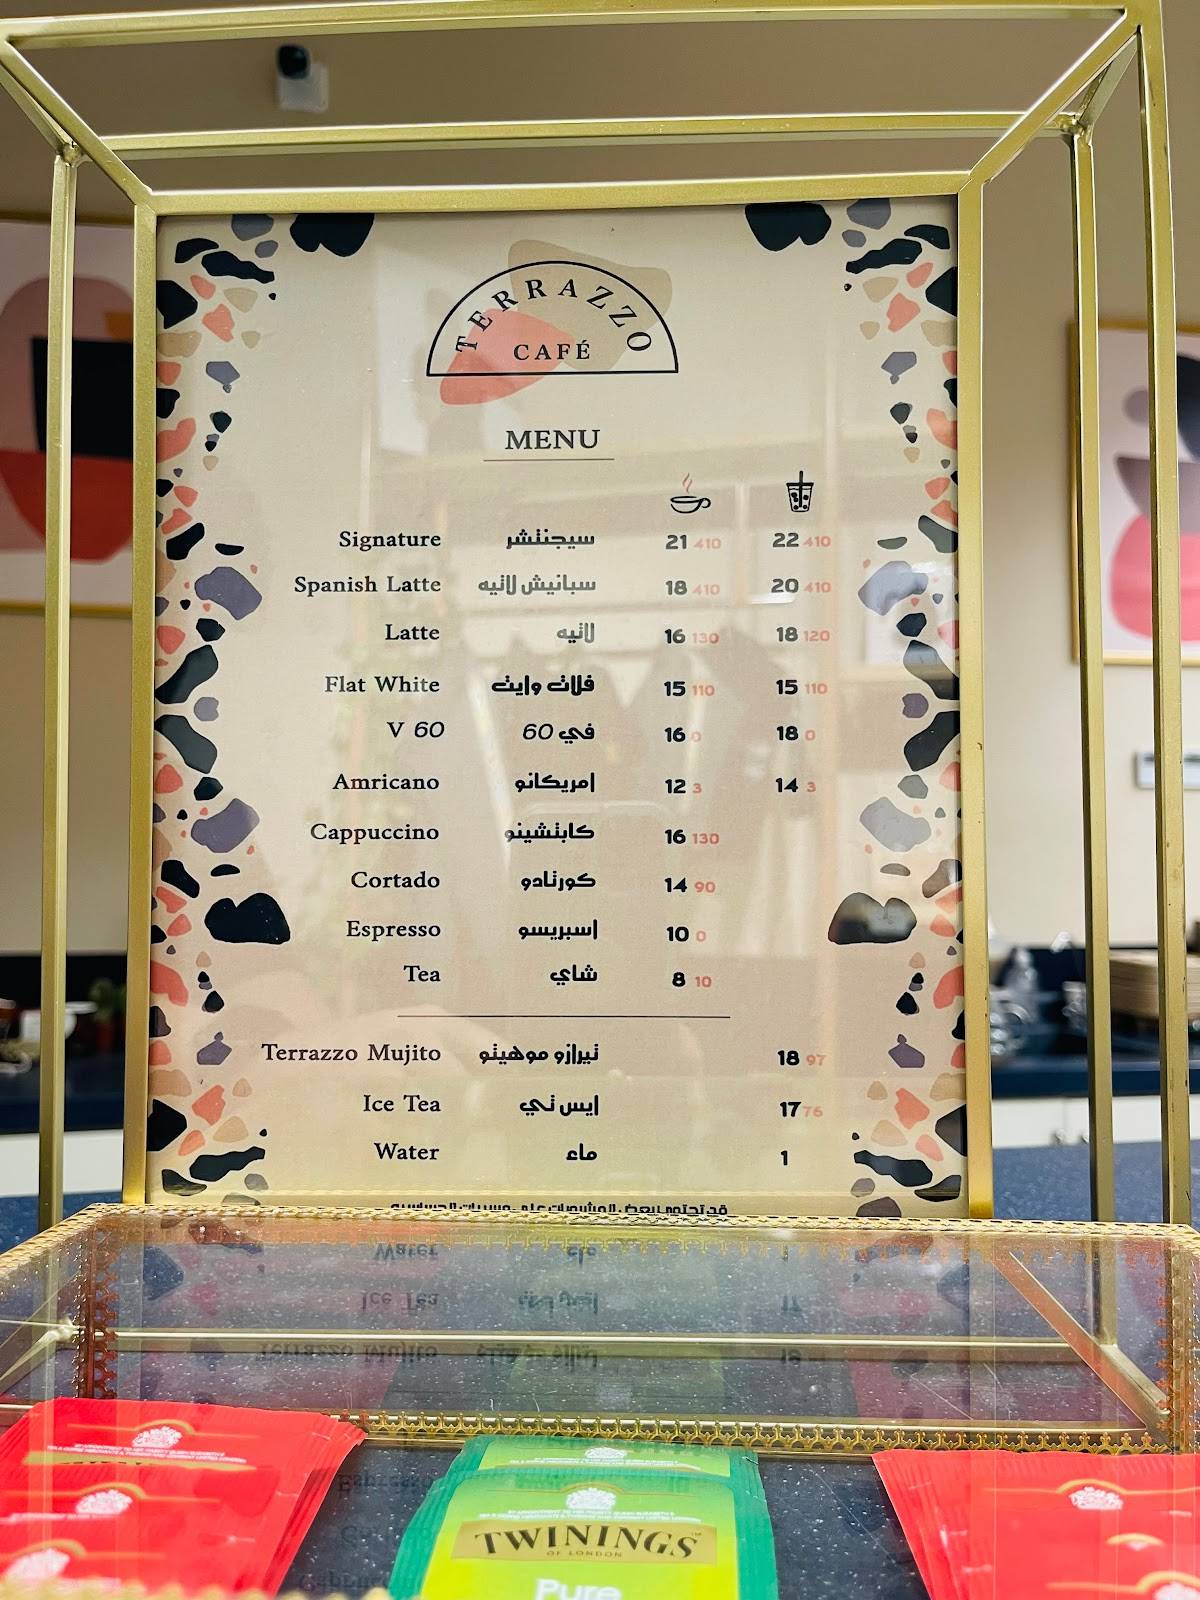 TERRAZZO
CAFÉ
MENU
Signature سيجنتشر 21 410 22 410
Spanish Latte سبانيش لاتيه 18 410 20 410
Latte لاتيه 16 130 18 120
Flat White فلات وايت 15 110 15 110
V 60 في 60 16 0 18 0
Amricano امريكانو 12 3 14 3
Cappuccino كابتشينو 16 130
Cortado كورتادو 14 90
Espresso اسبريسو 10 0
Tea شاي 8 10
Terrazzo Mujito تيرازو موهيتو 18 97
Ice Tea ايس تي 17 76
Water ماء 1
قد تحتوي بعض المشروبات على مسببات الحساسية
TWININGS
OF LONDON
Pure